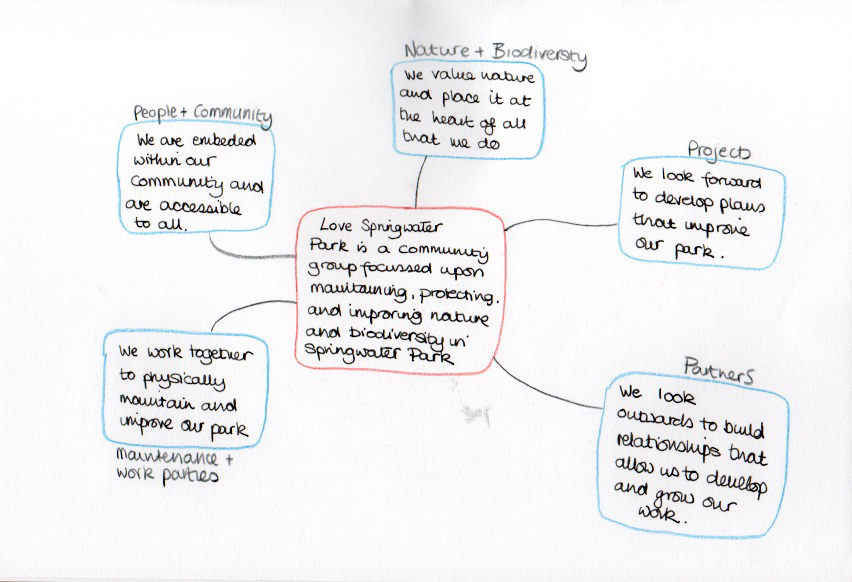 Nature + Biodiversity
We value nature
and place it at
the heart of all
that we do
People + Community
We are embeded
within our
Community and
are accessible
to all.
Projects
We look forward
to develop plans
that improve
our park.
Love Springwater
Park is a community
group focussed upon
maintaining, protecting,
and improving nature
and biodiversity in
Springwater Park
We work together
to physically
maintain and
improve our park
maintenance +
work parties
Partners
We look
outwards to build
relationships that
allow us to develop
and grow our
work.